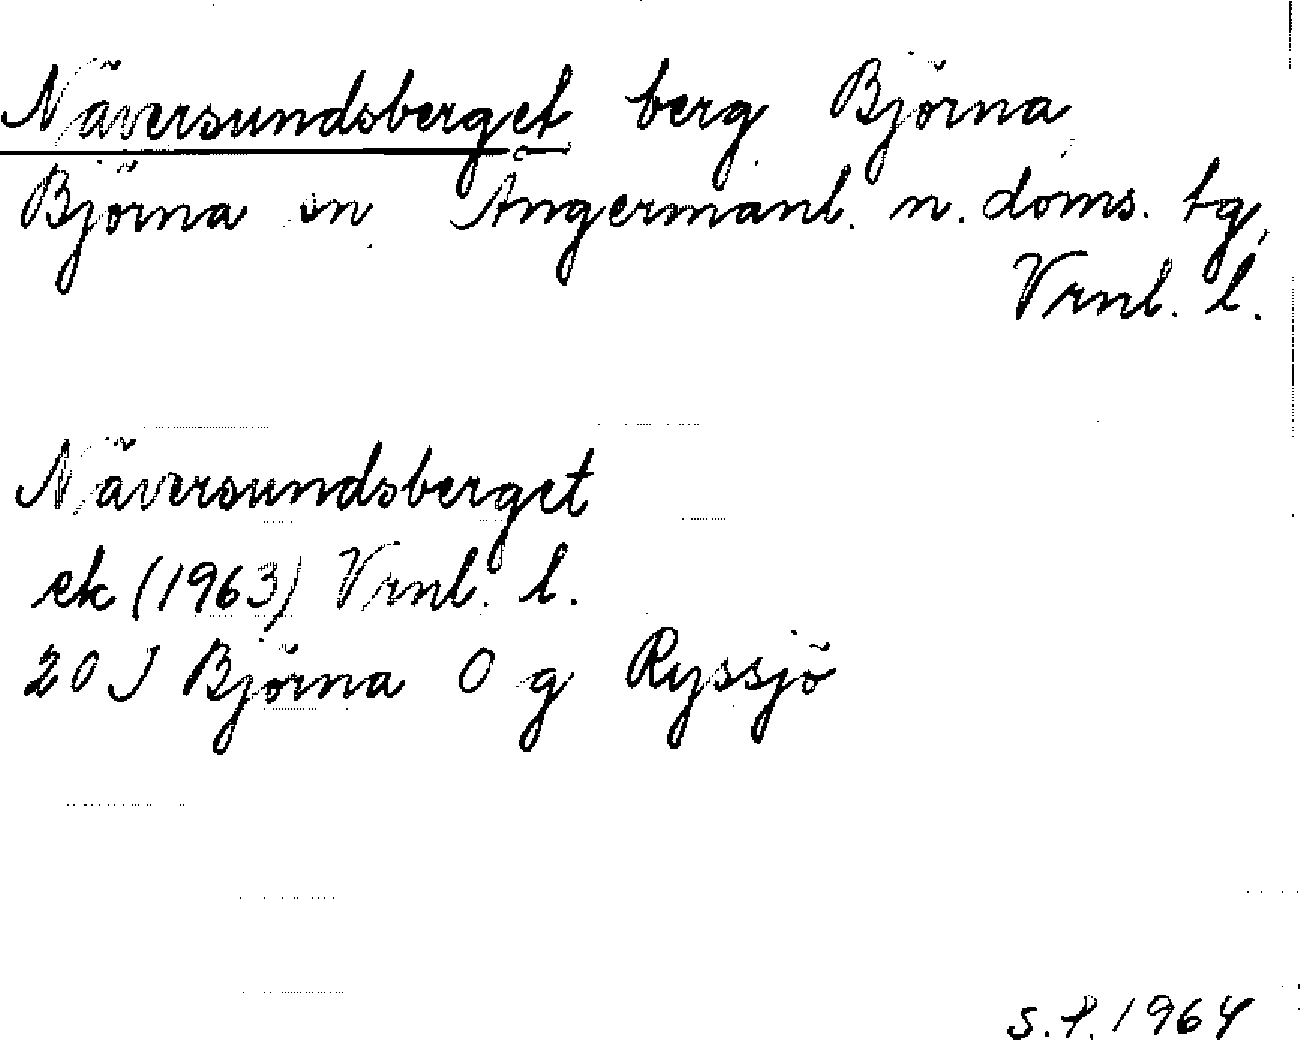 Näversundsberget berg Björna
Björna sn Ångermanl. n. doms. tg,
Vrnl. l.
Näversundsberget
ek (1963) Vrnl. l.
20 J Björna 0 g Ryssjö
s. f. 1964